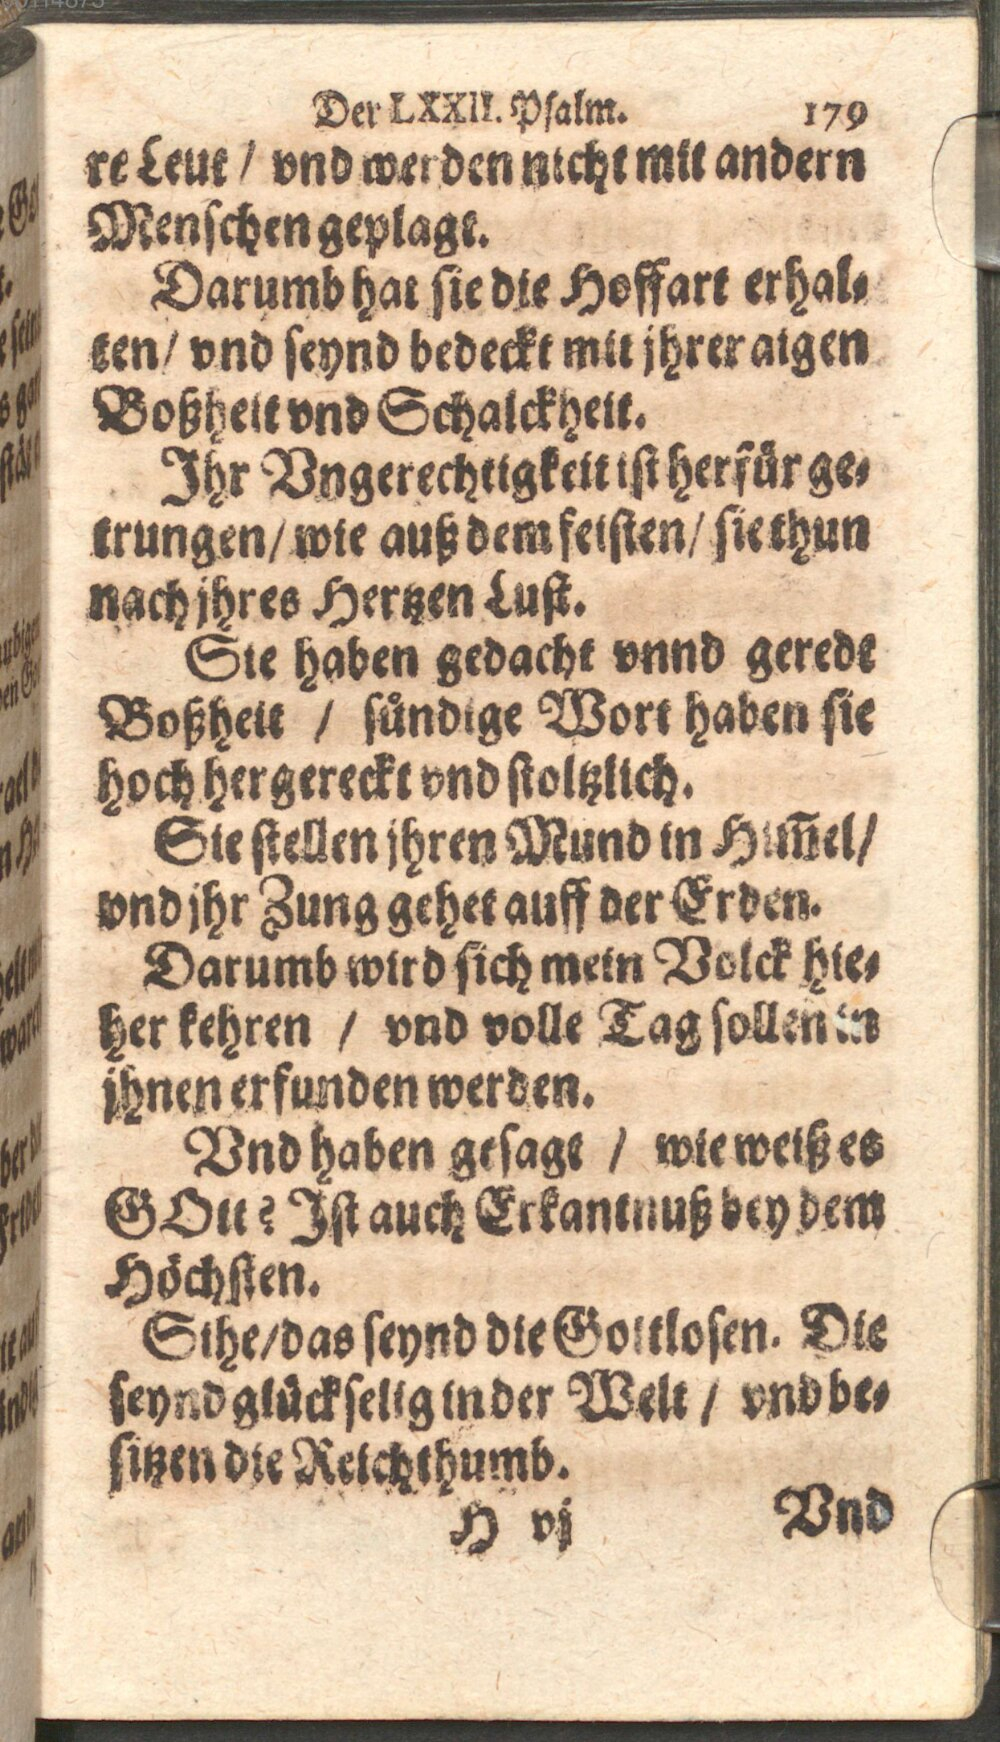 Der LXXII. Psalm. 179
re Leut / vnd werden nicht mit andern
Menschen geplagt.
Darumb hat sie die Hoffart erhal-
ten / vnd seynd bedeckt mit jhrer aigen
Boßheit vnd Schalckheit.
Ihr Vngerechtigkeit ist herfür ge-
trungen / wie auß dem feisten / sie thun
nach jhres Hertzen Lust.
Sie haben gedacht vnnd geredt
Boßheit / sündige Wort haben sie
hoch hergereckt vnd stoltzlich.
Sie stellen jhren Mund in Him̃el /
vnd jhr Zung gehet auff der Erden.
Darumb wird sich mein Volck hie-
her kehren / vnd volle Tag sollen in
jhnen erfunden werden.
Vnd haben gesagt / wie weiß es
GOtt? Ist auch Erkantnuß bey dem
Höchsten.
Sihe / das seynd die Gottlosen. Die
seynd glückselig in der Welt / vnd be-
sitzen die Reichthumb.
H vj Vnd